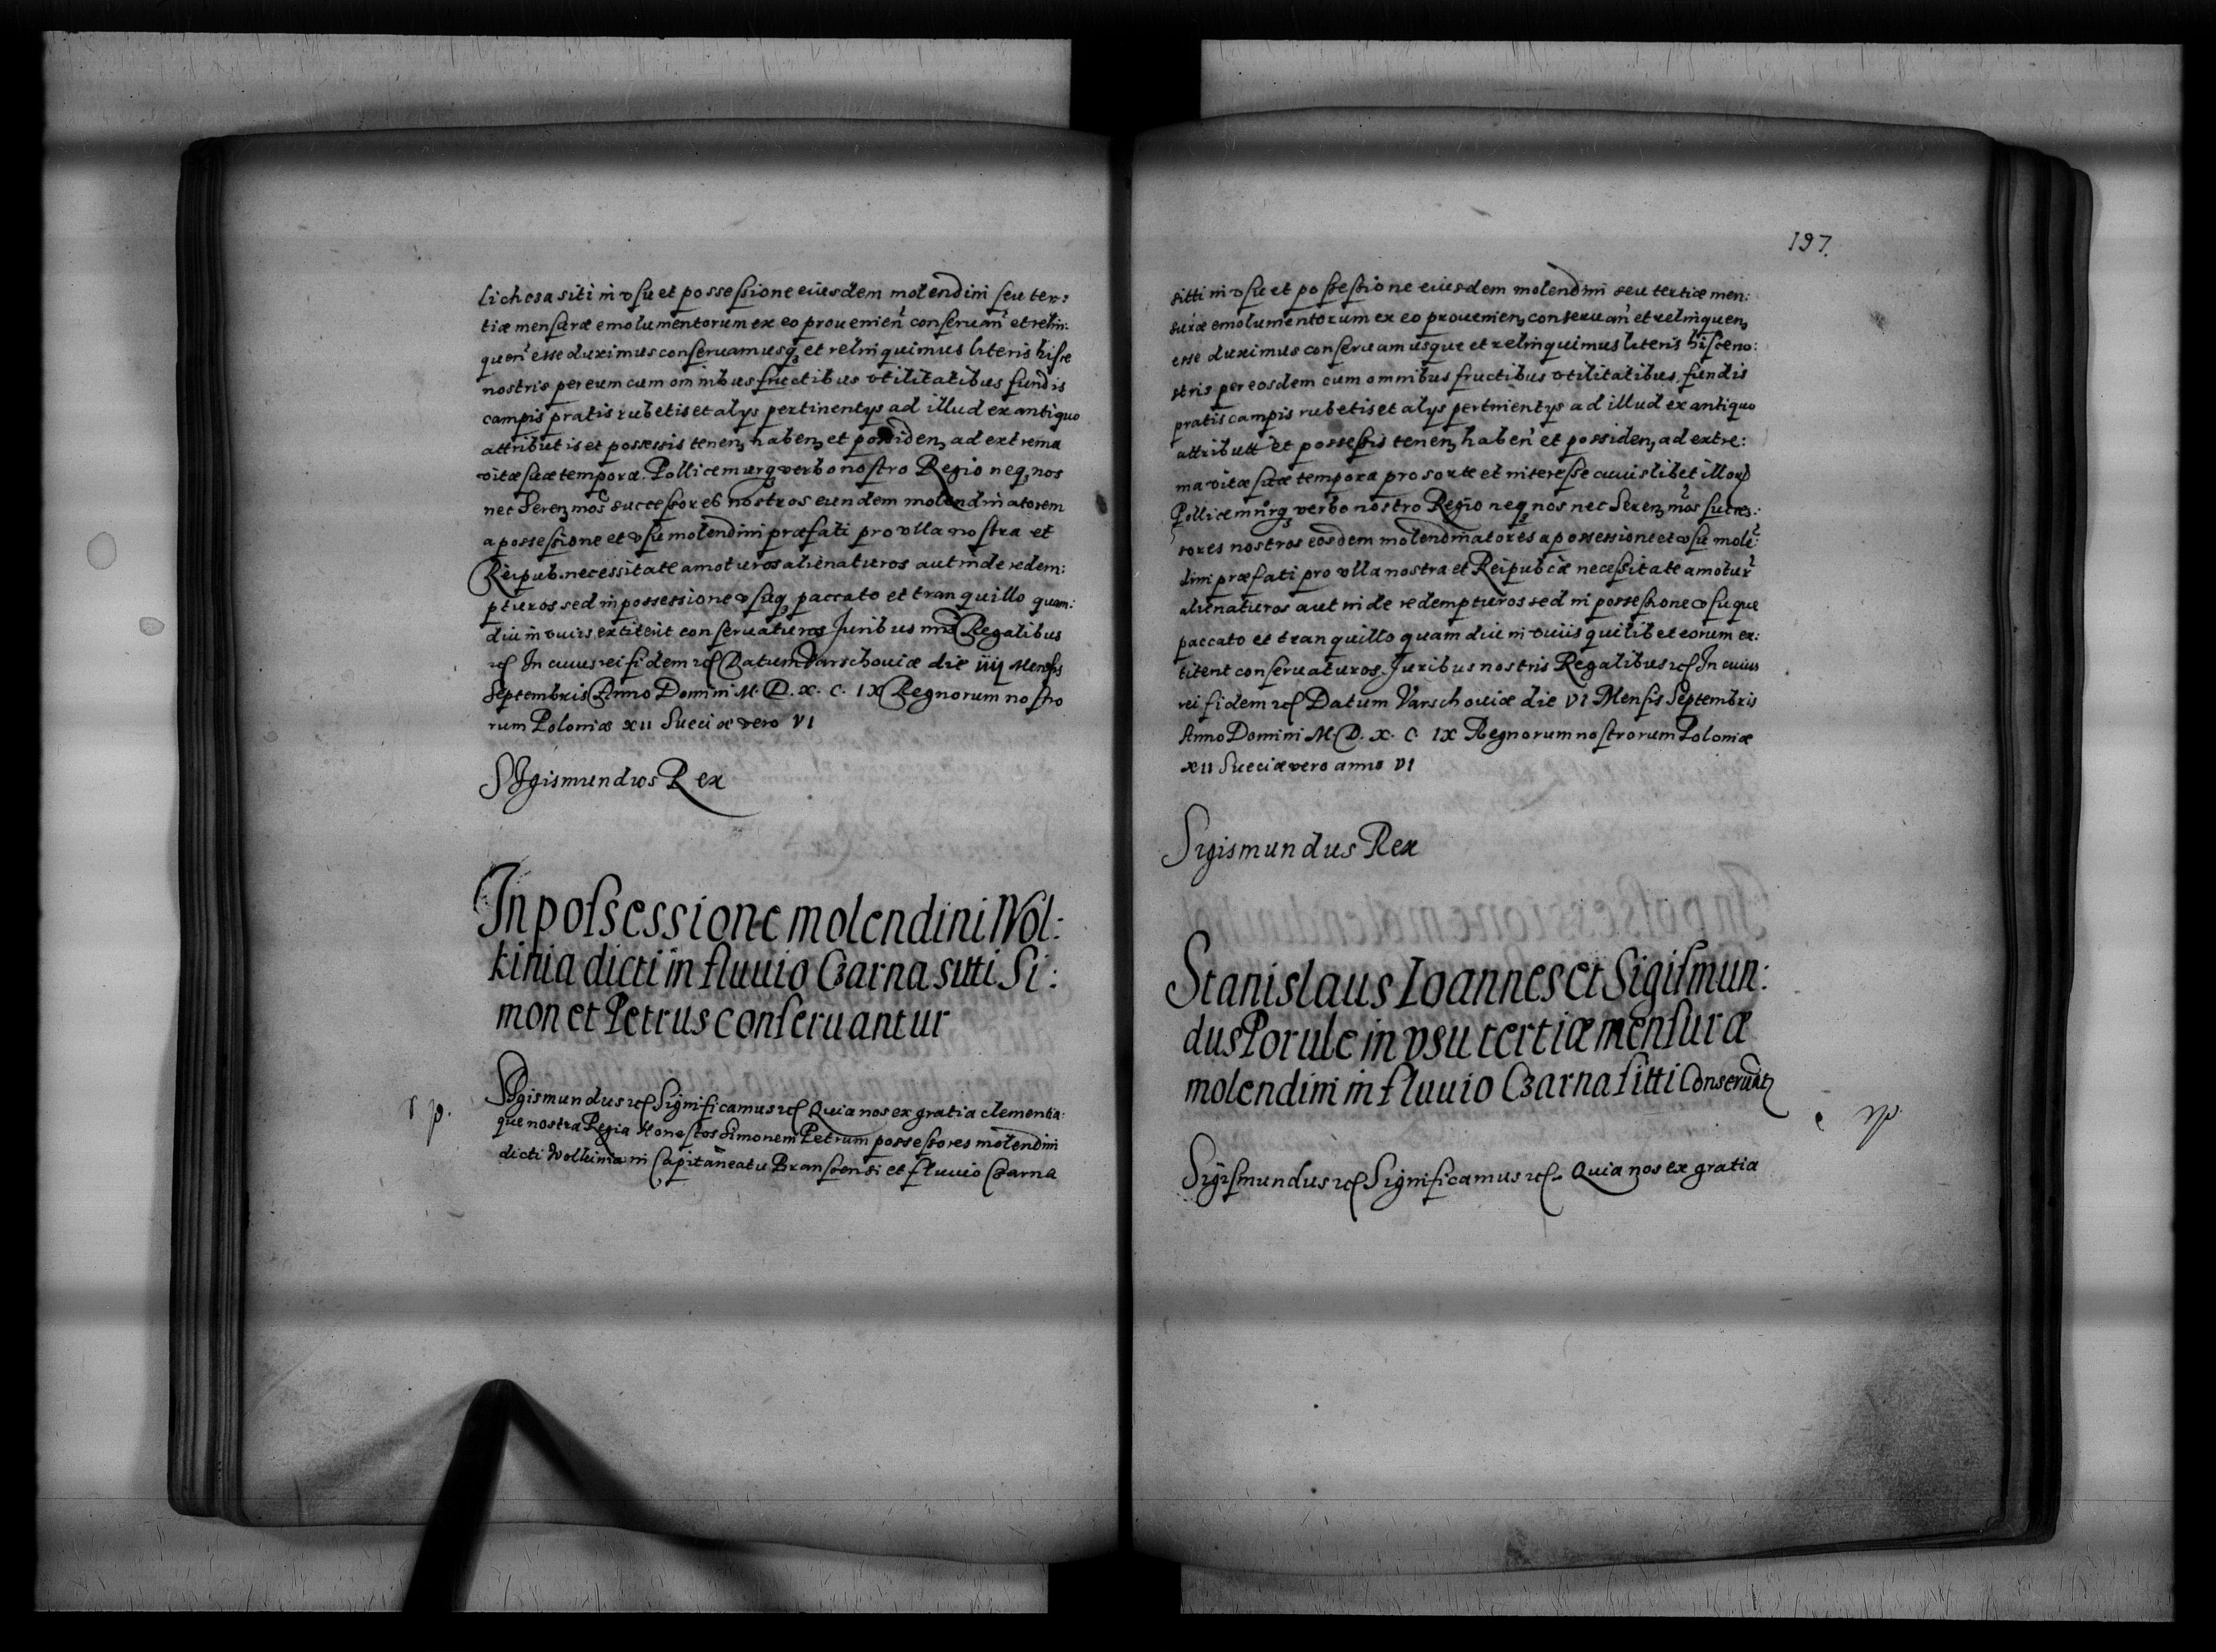 lichosa siti in vsu et possessione eiusdem molendini seu ter:
tiæ mensuræ emolumentorum ex eo prouenien̄ conseruan̄ et relin:
quen̄ esse duximus conseruamusq₃ et relinquimus literis hisce
nostris per eum cum omnibus fructibus vtilitatibus fundis
campis pratis rubetis et alys pertinentys ad illud ex antiquo
attributis et possessis tenen₃ haben₃ et possiden₃ ad extrema
vitæ suæ tempora. Pollicemurq₃ verbo nostro Regio neq₃ nos
nec Seren₃mos successores nostros eundem molendinatorem
a possessione et vsu molendini præfati pro vlla nostra et
Reipub. necessitate amoturos alienaturos aut inde redem:
pturos sed in possessione vsuq₃ paccato et tranquillo quam:
diu in viuis extiterit conseruaturos Juribus nr̄is Regalibus
etc In cuius rei fidem etc Datum Varschouiæ die iiij Mensis
Septembris Anno Domini M. D. X. C. IX Regnorum nostro
rum Poloniæ XII Sueciæ vero VI
SIgismundus Rex
In possessione molendini Wol:
kinia dicti in fluuio Czarna sitti Si:
mon et Petrus conseruantur
r p.
SIgismundus etc Significamus etc Quia nos ex gratia clementia:
que nostra Regia Honestos Simonem Petrum possessores molendini
dicti Wolkinia in Capitaneatu Branscensi et fluuio Czarna
197.
sitti in vsu et possessione eiusdem molendini seu tertiæ men:
suræ emolumentorum ex eo prouenien₃ conseruan̄ et relinquen₃
esse duximus conseruamusque et relinquimus literis hisce no:
stris per eosdem cum omnibus fructibus vtilitatibus, fundis
pratis campis rubetis et alys pertinentys ad illud ex antiquo
attributt et possessis tenen₃ haben̄ et possiden₃ ad extre:
ma vitæ suæ tempora pro sorte et interesse cuiuslibet illorū
Pollicemurq₃ verbo nostro Regio neq₃ nos nec Seren₃mos succes:
sores nostros eosdem molendinatores a possessione et vsu mole:
dini præfati pro vlla nostra et Reipubcæ necessitate amotur̄
alienaturos aut inde redempturos sed in possessione vsuque
paccato et tranquillo quam diu in viuis quilibet eorum ex:
titerit conseruaturos. Juribus nostris Regalibus etc In cuius
rei fidem etc Datum Varschouiæ die VI Mensis Septembris
Anno Domini M. D. X. C. IX Regnorum nostrorum Poloniæ
XII Sueciæ vero anno VI
Sigismundus Rex
Stanislaus Ioannes et Sigismun:
dus Porule in vsu tertiæ mensuræ
molendini in fluuio Czarna sitti Conseruāt₃
rp.
Sigismundus etc Significamus etc. Quia nos ex gratia